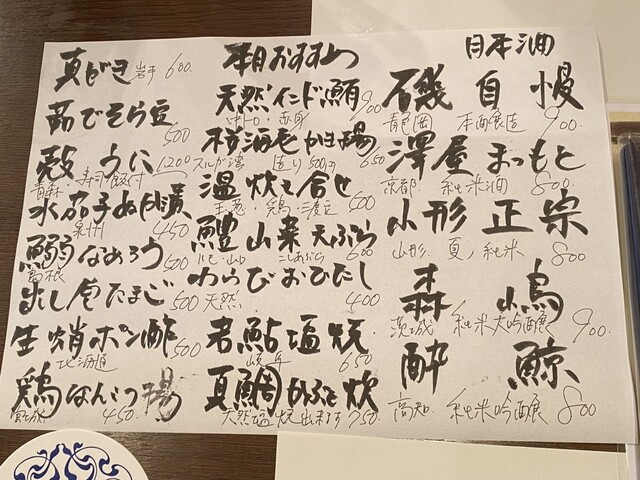 本日おすすめ
真がき 岩手 600.
茹でそら豆
500
殻うに 1200
青森・寿司飯付
水茄子ぬか漬
泉州 450
鰯なめろう
島根 500
出し巻たまご 500
生蛸ポン酢
北海道 500
鶏なんこつ揚
宮城 450.
天然インド鮪
赤身 900
桜海老かき揚
スルガ湾 造り500円 650
温炊き合せ
玉葱・鶏・
600
鱧山菜天ぷら
こしあぶら 600
わらびおひたし
天然 400
若鮎塩焼
岐阜 650
夏鯛かぶと炊
天然塩焼出来ます 750.
日本酒
磯自慢
静岡 本醸造 900.
澤屋まつもと
京都 純米酒 800.
山形正宗
山形. 夏ノ純米 800
森嶋
茨城 純米大吟醸 900.
酔鯨
高知. 純米吟醸 800